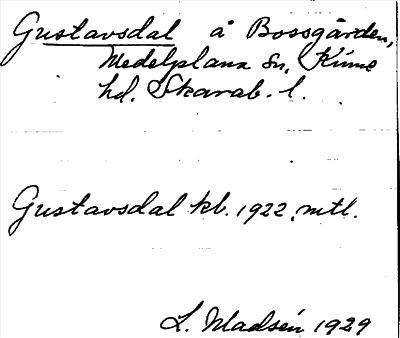 Gustavsdal å Bossgården,
Medelplana sn, Kinne
hd. Skarab. l.
Gustavsdal kb. 1922, mtl.
L. Madsén 1929